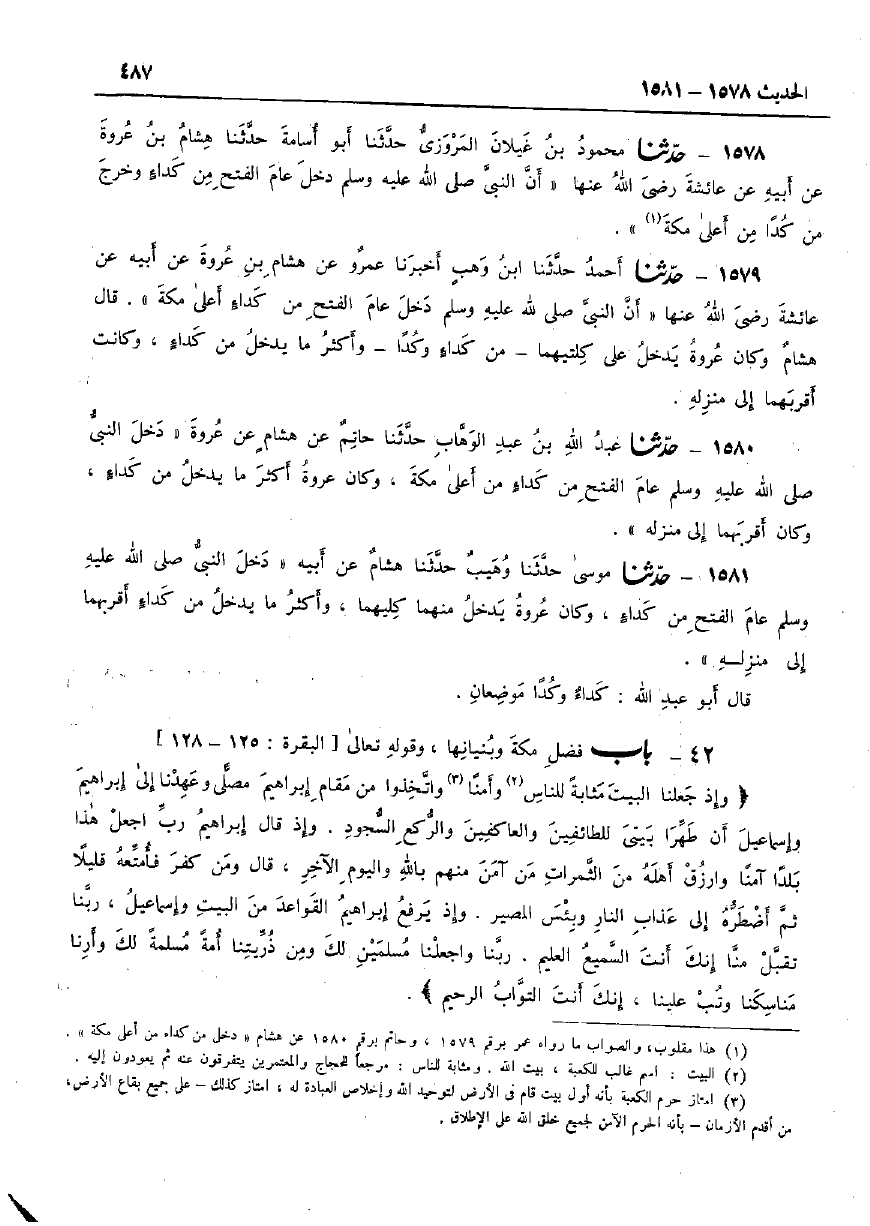 الحديث ١٥٧٨ – ١٥٨١
٤٨٧
١٥٧٨ – حدّثنا محمودُ بنُ غَيلانَ المَرْوَزىُّ حدَّثَنا أبو أُسامةَ حدَّثَنا هِشامُ بنُ عُروةَ
عن أبيهِ عن عائشةَ رضىَ اللهُ عنها « أنَّ النبىَّ صلى الله عليه وسلم دخلَ عامَ الفتحِ مِن كَداءٍ وخرجَ
من كُدًا مِن أعلىٰ مكةَ(١) » .
١٥٧٩ – حدّثنا أحمدُ حدَّثَنا ابنُ وَهبٍ أخبرَنا عمرٌو عن هشامِ بنِ عُروةَ عن أبيه عن
عائشةَ رضىَ اللهُ عنها « أنَّ النبىَّ صلى لله عليهِ وسلم دَخلَ عامَ الفتحِ من كَداءٍ أعلىٰ مكةَ » . قال
هشامٌ وكان عُروةُ يَدخلُ على كِلتيهما – من كَداءٍ وكُدًا – وأكثرُ ما يدخلُ من كَداءٍ ، وكانت
أقربَهما إلى منزلهِ .
١٥٨٠ – حدّثنا عبدُ اللهِ بنُ عبدِ الوَهَّابِ حدَّثَنا حاتِمٌ عن هشامٍ عن عُروةَ « دَخلَ النبىُّ
صلى الله عليهِ وسلم عامَ الفتحِ من كَداءٍ من أعلىٰ مكةَ ، وكان عروةُ أكثرَ ما يدخلُ من كَداءٍ ،
وكان أقربَهما إلى منزله » .
١٥٨١ – حدّثنا موسىٰ حدَّثَنا وُهَيبٌ حدَّثَنا هشامٌ عن أبيه « دَخلَ النبىُّ صلى الله عليهِ
وسلم عامَ الفتحِ من كَداءٍ ، وكان عُروةُ يَدخلُ منهما كِليهما ، وأكثرُ ما يدخلُ من كَداءٍ أقربهما
إلى منزِلـهِ » .
قال أبو عبدِ الله : كَداءٌ وكُدًا مَوضِعانِ .
٤٢ – باب فضلِ مكةَ وبُنيانِها ، وقولهِ تعالىٰ [ البقرة : ١٢٥ – ١٢٨ ]
﴿ وإذ جَعلنا البيتَ مَثابةً للناسِ(٢) وأَمنًا(٣) واتَّخِذوا من مَقامِ إبراهيمَ مصلًّى وعَهِدْنا إلىٰ إبراهيمَ
وإسماعيلَ أن طَهِّرا بَيتىَ للطائفِينَ والعاكفِينَ والرُّكعِ السُّجودِ . وإذ قال إبراهيمُ ربِّ اجعلْ هٰذا
بَلدًا آمنًا وارزُقْ أهلَهُ منَ الثَّمراتِ مَن آمَنَ منهم باللهِ واليومِ الآخرِ ، قال ومَن كفرَ فأُمتِّعهُ قليلًا
ثمَّ أضْطَرُّهُ إلى عَذابِ النارِ وبِئْسَ المصير . وإذ يَرفعُ إبراهيمُ القَواعدَ منَ البيتِ وإسماعيلُ ، ربَّنا
تقبَّلْ منَّا إنكَ أنتَ السَّميعُ العليم . ربَّنا واجعلْنا مُسلمَيْنِ لكَ ومِن ذُرِّيتِنا أمةً مُسلمةً لكَ وأرِنا
مَناسِكَنا وتُبْ علينا ، إنكَ أنتَ التوَّابُ الرحيم ﴾ .
(١) هذا مقلوب، والصواب ما رواه عمر برقم ١٥٧٩ ، وحاتم برقم ١٥٨٠ عن هشام « دخل من كداء من أعلى مكة » .
(٢) البيت : اسم غالب للكعبة ، بيت الله . ومثابة للناس : مرجعاً للحجاج والمعتمرين يتفرقون عنه ثم يعودون إليه .
(٣) امتاز حرم الكعبة بأنه أول بيت قام فى الأرض لتوحيد الله وإخلاص العبادة له ، امتاز كذلك – على جميع بقاع الأرض،
من أقدم الأزمان – بأنه الحرم الآمن لجميع خلق الله على الإطلاق .